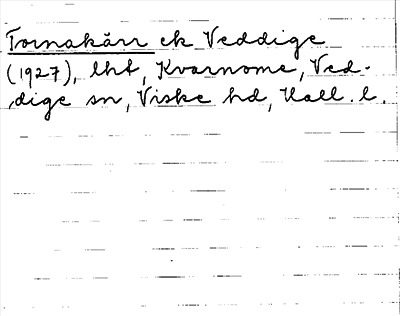 Tornakärr ek Veddige
(1927), lht, Kvarnome, Ved-
dige sn, Viske hd, Hall. l.